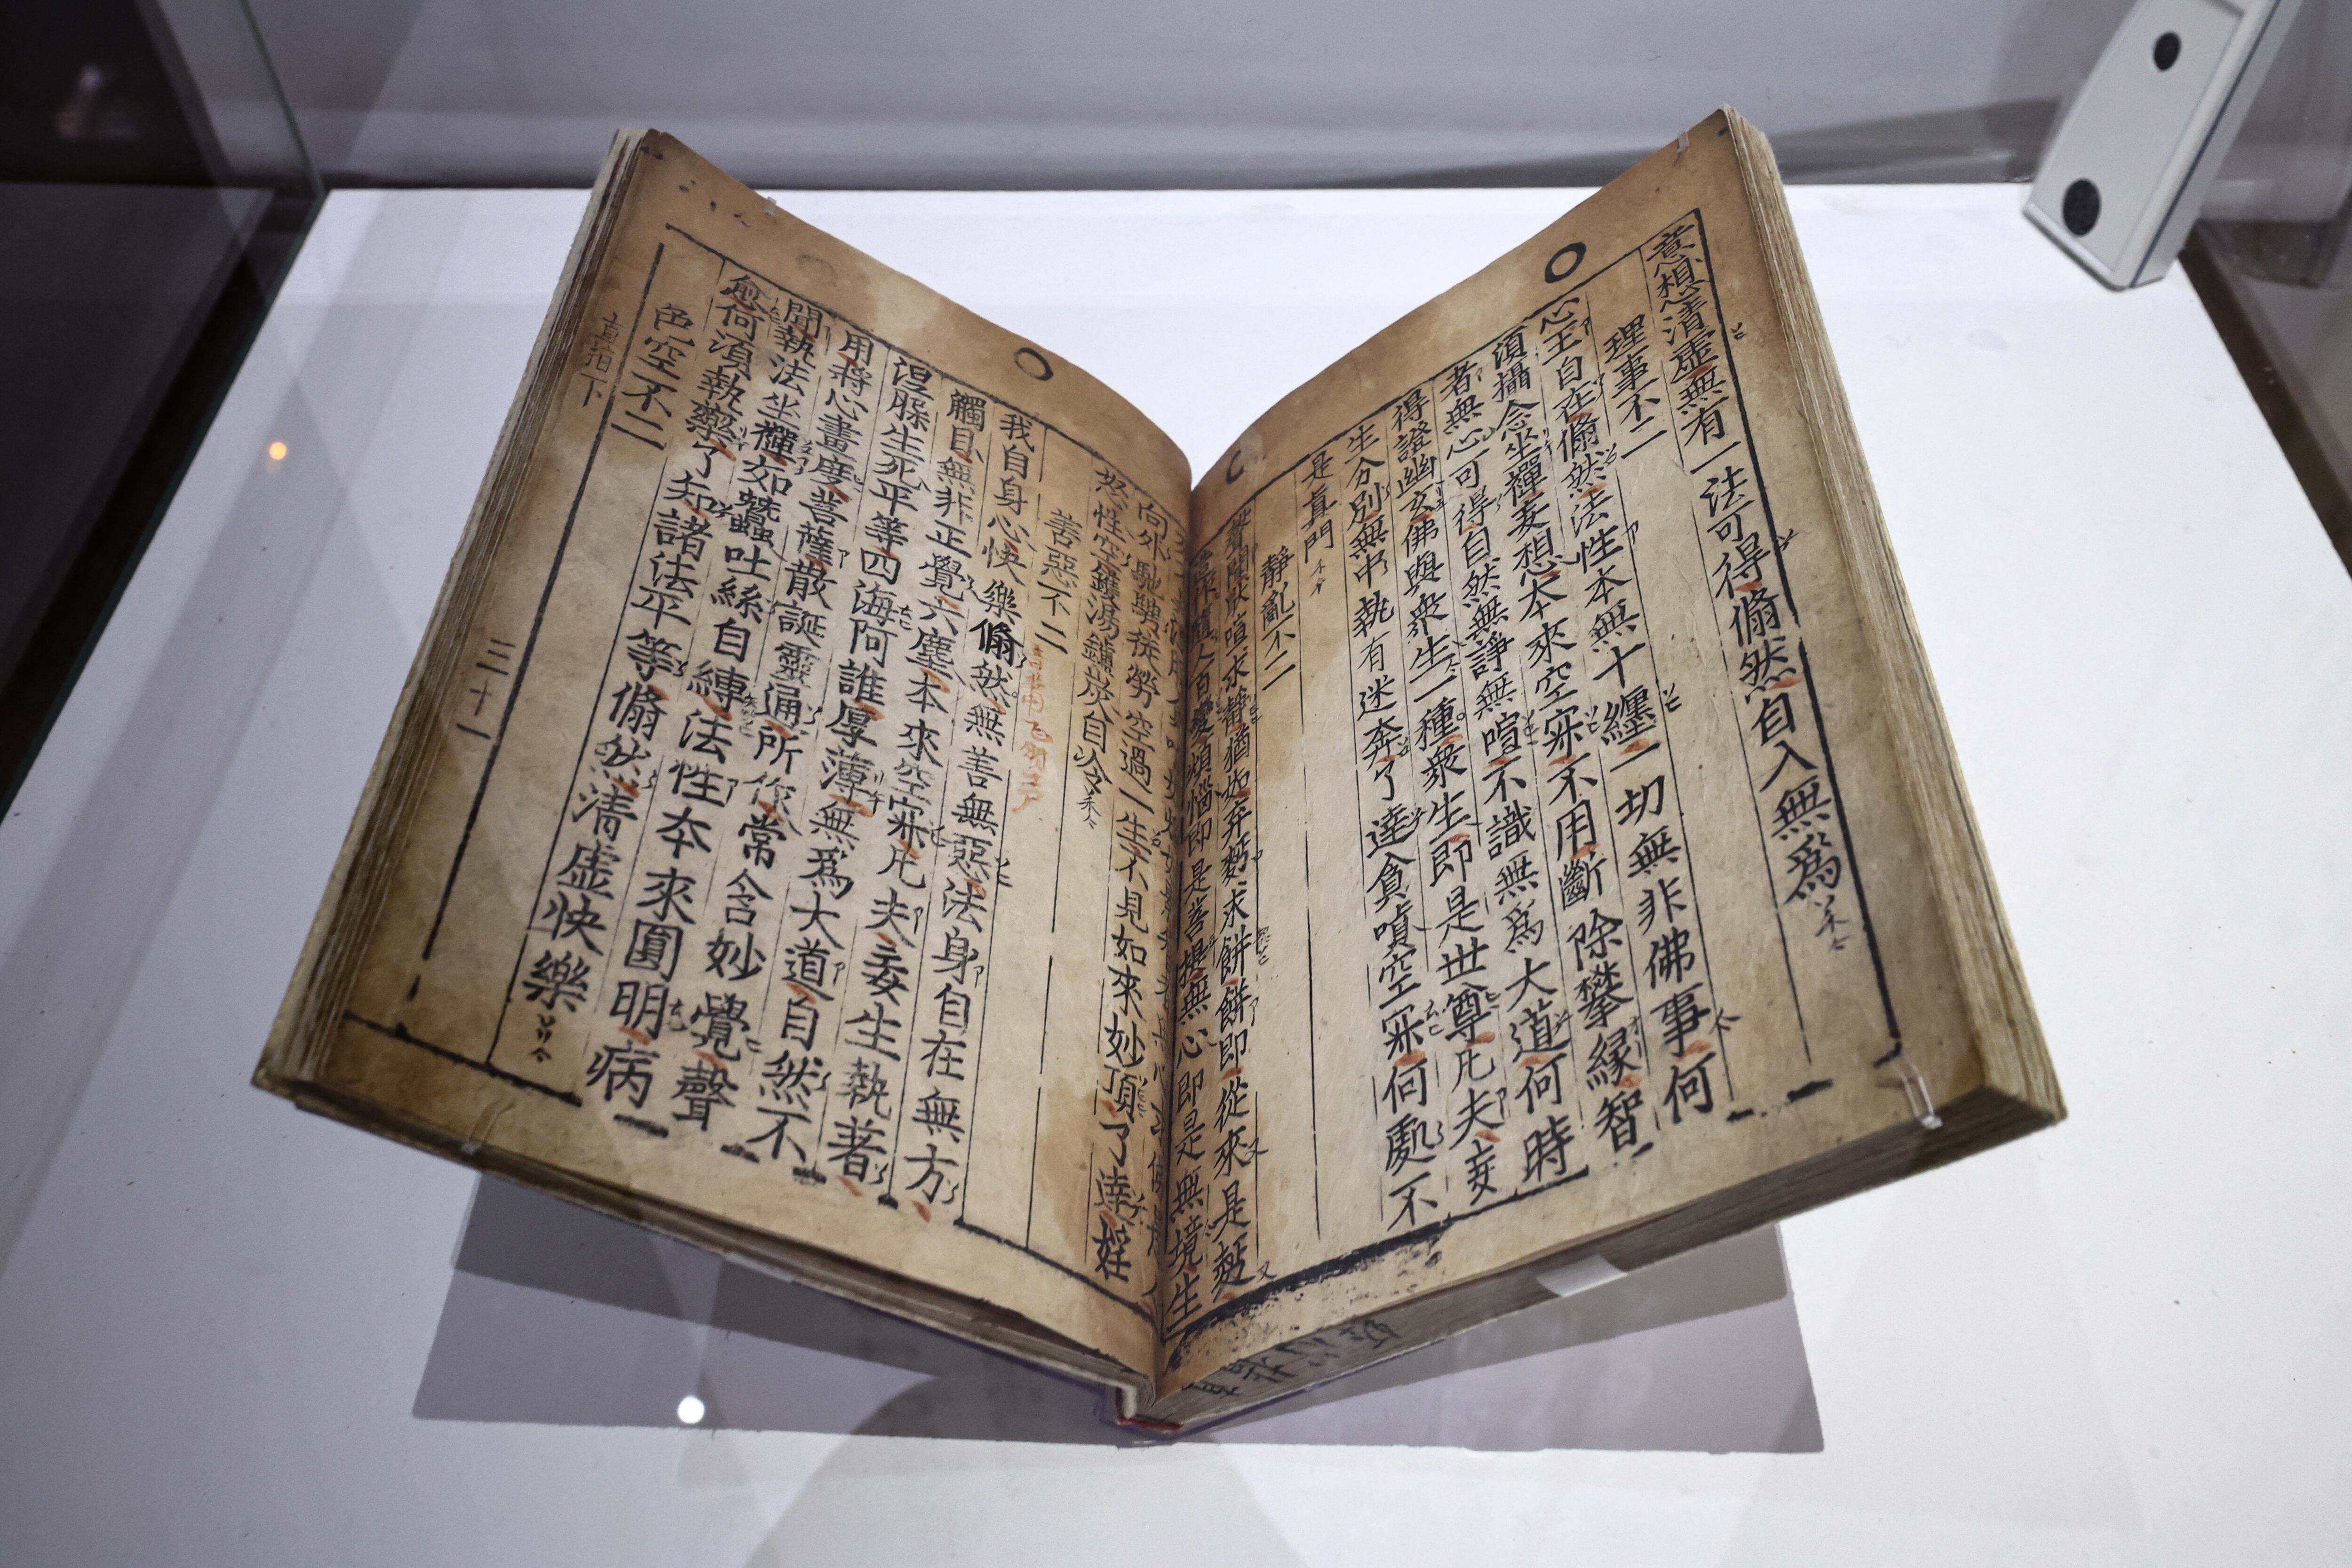 意想清虛無有一法可得翛然自入無爲
理事不二
心王自在翛然法性本無十纏一切無非佛事何
須攝念坐禪妄想本來空寂不用斷除攀緣智
者無心可得自然無諍無喧不識無爲大道何時
得證幽玄佛與衆生一種衆生即是世尊凡夫妄
生分別無中執有迷奔了達貪嗔空寂何處不
是眞門
靜亂不二
聲聞厭喧求靜猶如弃麪求餅餅即從來是麪
造作隨人百變煩惱即是菩提無心即是無境生
向外馳騁徒勞空過一生不見如來妙頂了達婬
慾性空鑊湯鑪炭自冷
善惡不二
我自身心快樂翛然無善無惡法身自在無方
觸目無非正覺六塵本來空寂凡夫妄生執著
涅槃生死平等四海阿誰厚薄無爲大道自然不
用將心畫度菩薩散誕靈通所作常含妙覺聲
聞執法坐禪如蠶吐絲自縛法性本來圓明病
愈何須執藥了知諸法平等翛然清虛快樂
色空不二
直指下 三十一